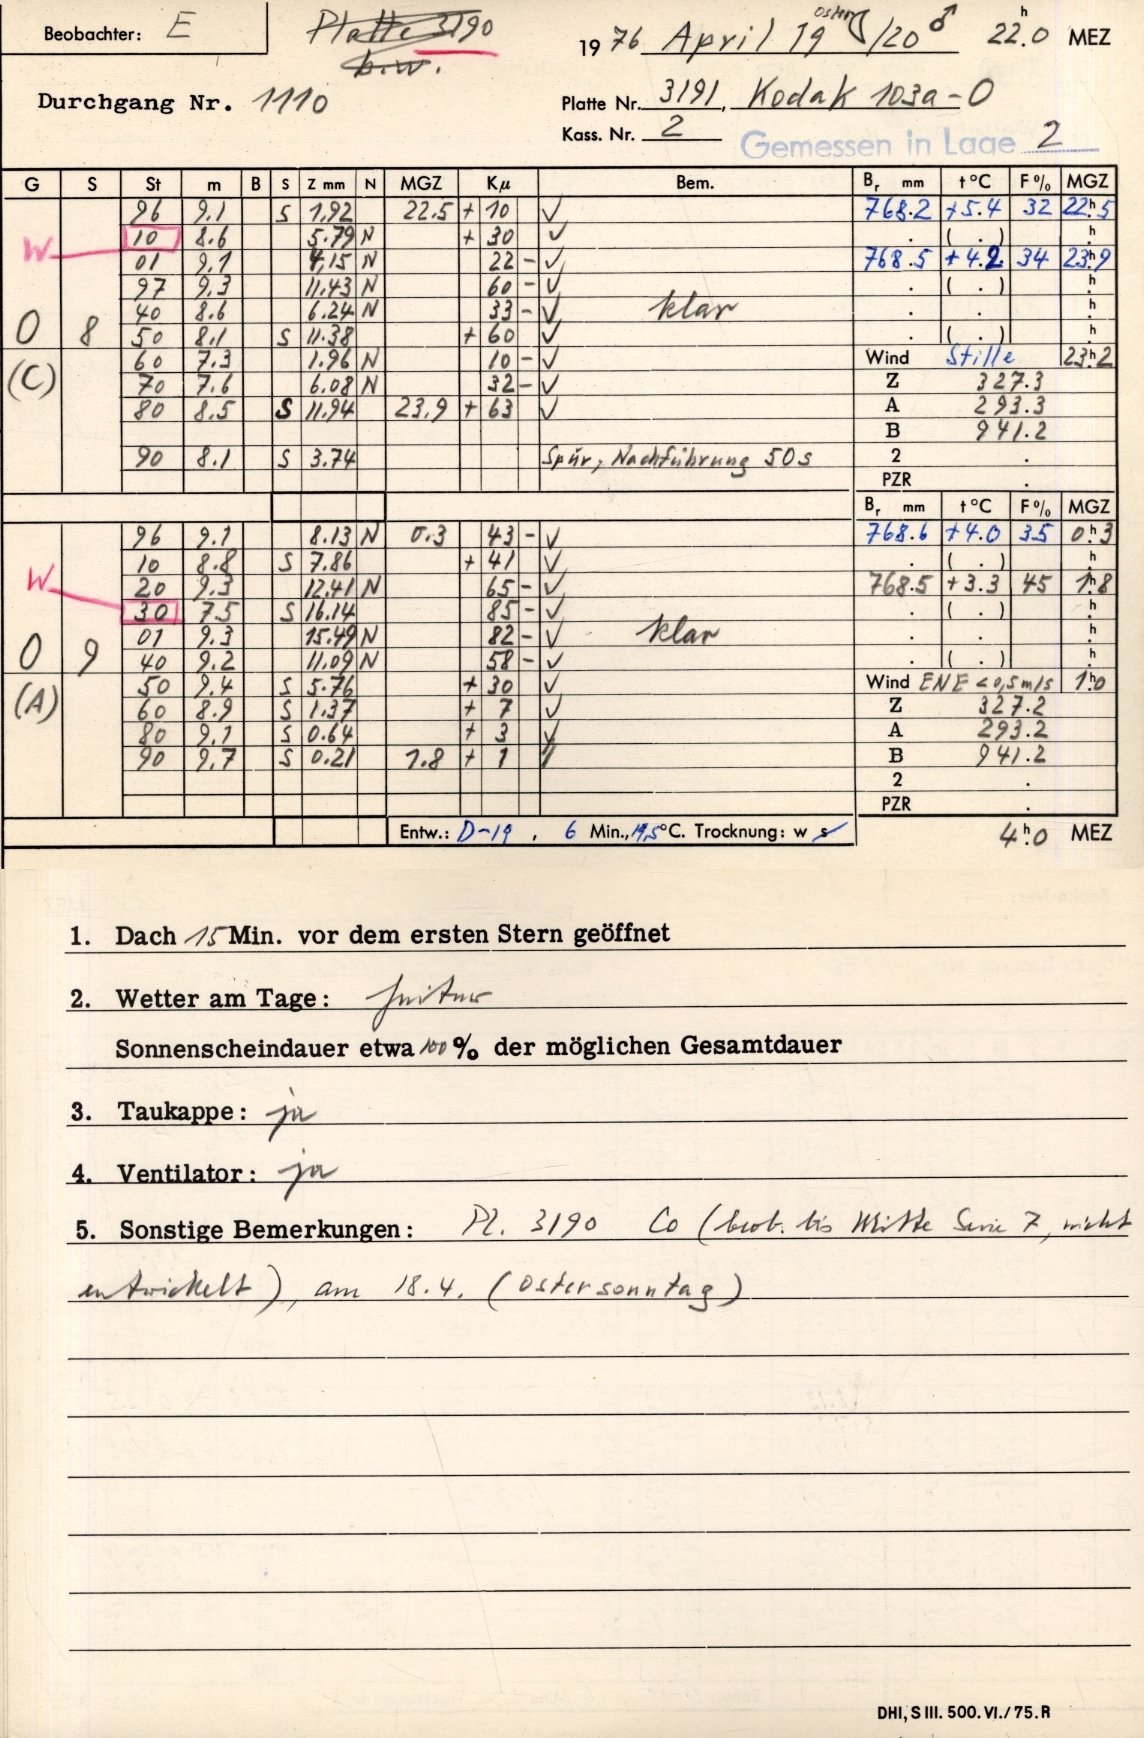 Beobachter: E Platte 3190 1976 April 19 Oster /20 ♂ 22.h0 MEZ
b.w.
Durchgang Nr. 1110 Platte Nr. 3191, Kodak 103a-O
Kass. Nr. 2 Gemessen in Lage 2
G S St m B S Z mm N MGZ Kμ Bem. Br mm t°C F% MGZ
96 9.1 S 1.92 22.5 + 10 √ 768.2 +5.4 32 22h5
W 10 8.6 5.79 N + 30 √ . ( . ) h.
01 9.1 4.15 N 22 - √ 768.5 +4.2 34 23h9
97 9.3 11.43 N 60 - √ . ( . ) h.
40 8.6 6.24 N 33 - √ klar . . h.
0 8 50 8.1 S 11.38 + 60 √ . ( . ) h.
(C) 60 7.3 1.96 N 10 - √ Wind Stille 23h2
70 7.6 6.08 N 32 - √ Z 327.3
80 8.5 S 11.94 23.9 + 63 √ A 293.3
B 941.2
90 8.1 S 3.74 Spur, Nachführung 50s 2 .
PZR .
Br mm t°C F% MGZ
96 9.1 8.13 N 0.3 43 - √ 768.6 +4.0 35 0h3
10 8.8 S 7.86 + 41 √ . ( . ) h.
W 20 9.3 12.41 N 65 - √ 768.5 +3.3 45 1h8
30 7.5 S 16.14 85 - √ . ( . ) h.
01 9.3 15.49 N 82 - √ klar . . h.
0 9 40 9.2 11.09 N 58 - √ . ( . ) h.
(A) 50 9.4 S 5.76 + 30 √ Wind ENE <0,5m/s 1h0
60 8.9 S 1.37 + 7 √ Z 327.2
80 9.1 S 0.64 + 3 √ A 293.2
90 9.7 S 0.21 1.8 + 1 √ B 941.2
2 .
PZR .
Entw.: D-19, 6 Min., 19,5°C. Trocknung: w s 4h0 MEZ
1. Dach 15 Min. vor dem ersten Stern geöffnet
2. Wetter am Tage: heiter
Sonnenscheindauer etwa 100 % der möglichen Gesamtdauer
3. Taukappe: ja
4. Ventilator: ja
5. Sonstige Bemerkungen: Pl. 3190 Co (beob. bis Mitte Serie 7, nicht
entwickelt), am 18.4. (Ostersonntag)
DHI, S III. 500. VI./75. R